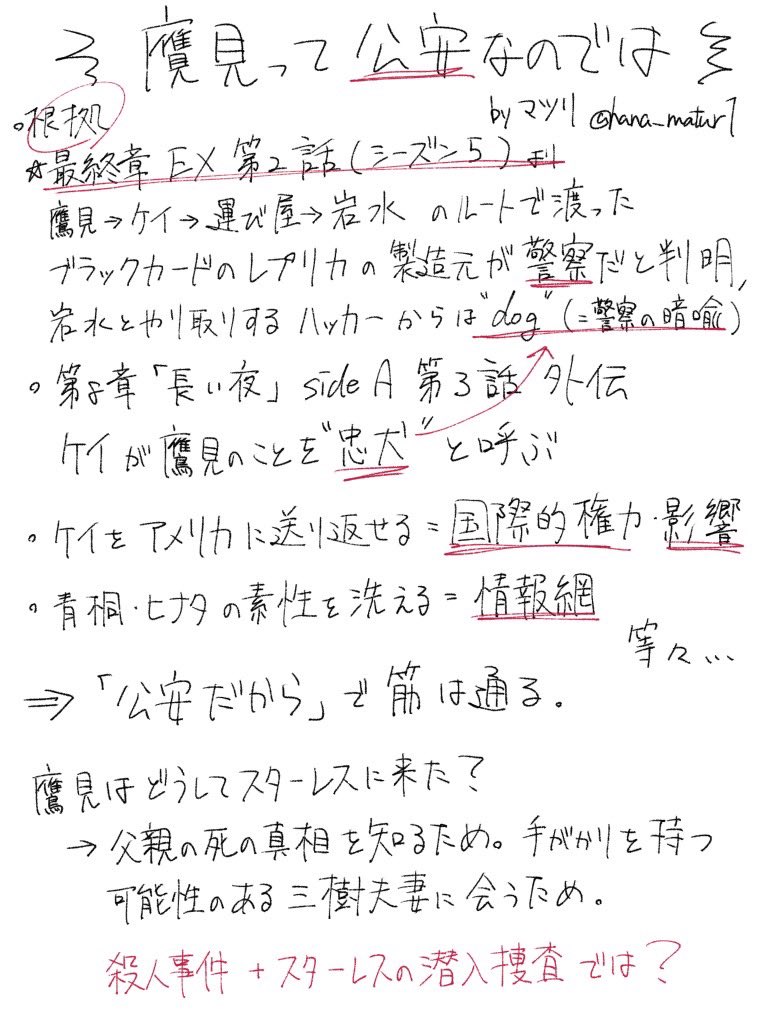 鷹見って公安なのでは
by マツリ @hana_matur1
◦根拠
☆最終章 EX 第2話(シーズン5)より
鷹見→ケイ→運び屋→岩水 のルートで渡った
ブラックカードのレプリカの製造元が警察だと判明,
岩水とやり取りするハッカーからは"dog"(=警察の暗喩)
◦ 第8章「長い夜」side A 第3話 外伝
ケイが鷹見のことを"忠犬"と呼ぶ
・ケイをアメリカに送り返せる=国際的権力・影響
・青桐・ヒナタの素性を洗える=情報網
等々...
⇒「公安だから」で筋は通る。
鷹見はどうしてスターレスに来た?
→父親の死の真相を知るため。手がかりを持つ
可能性のある三樹夫妻に会うため。
殺人事件+スターレスの潜入捜査では?